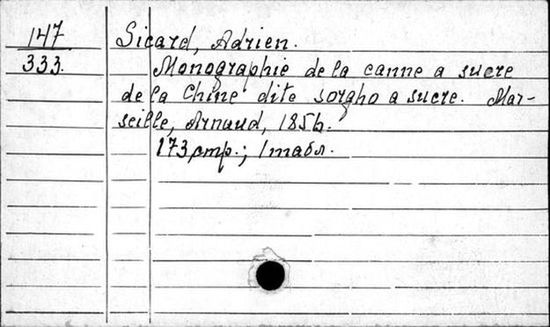 147
333.
Sicard, Adrien.
Monographie de la canne a sucre
de la Chine dite sorgho a sucre. Mar-
seille, Arnaud, 1856.
173 стр.; 1 табл.